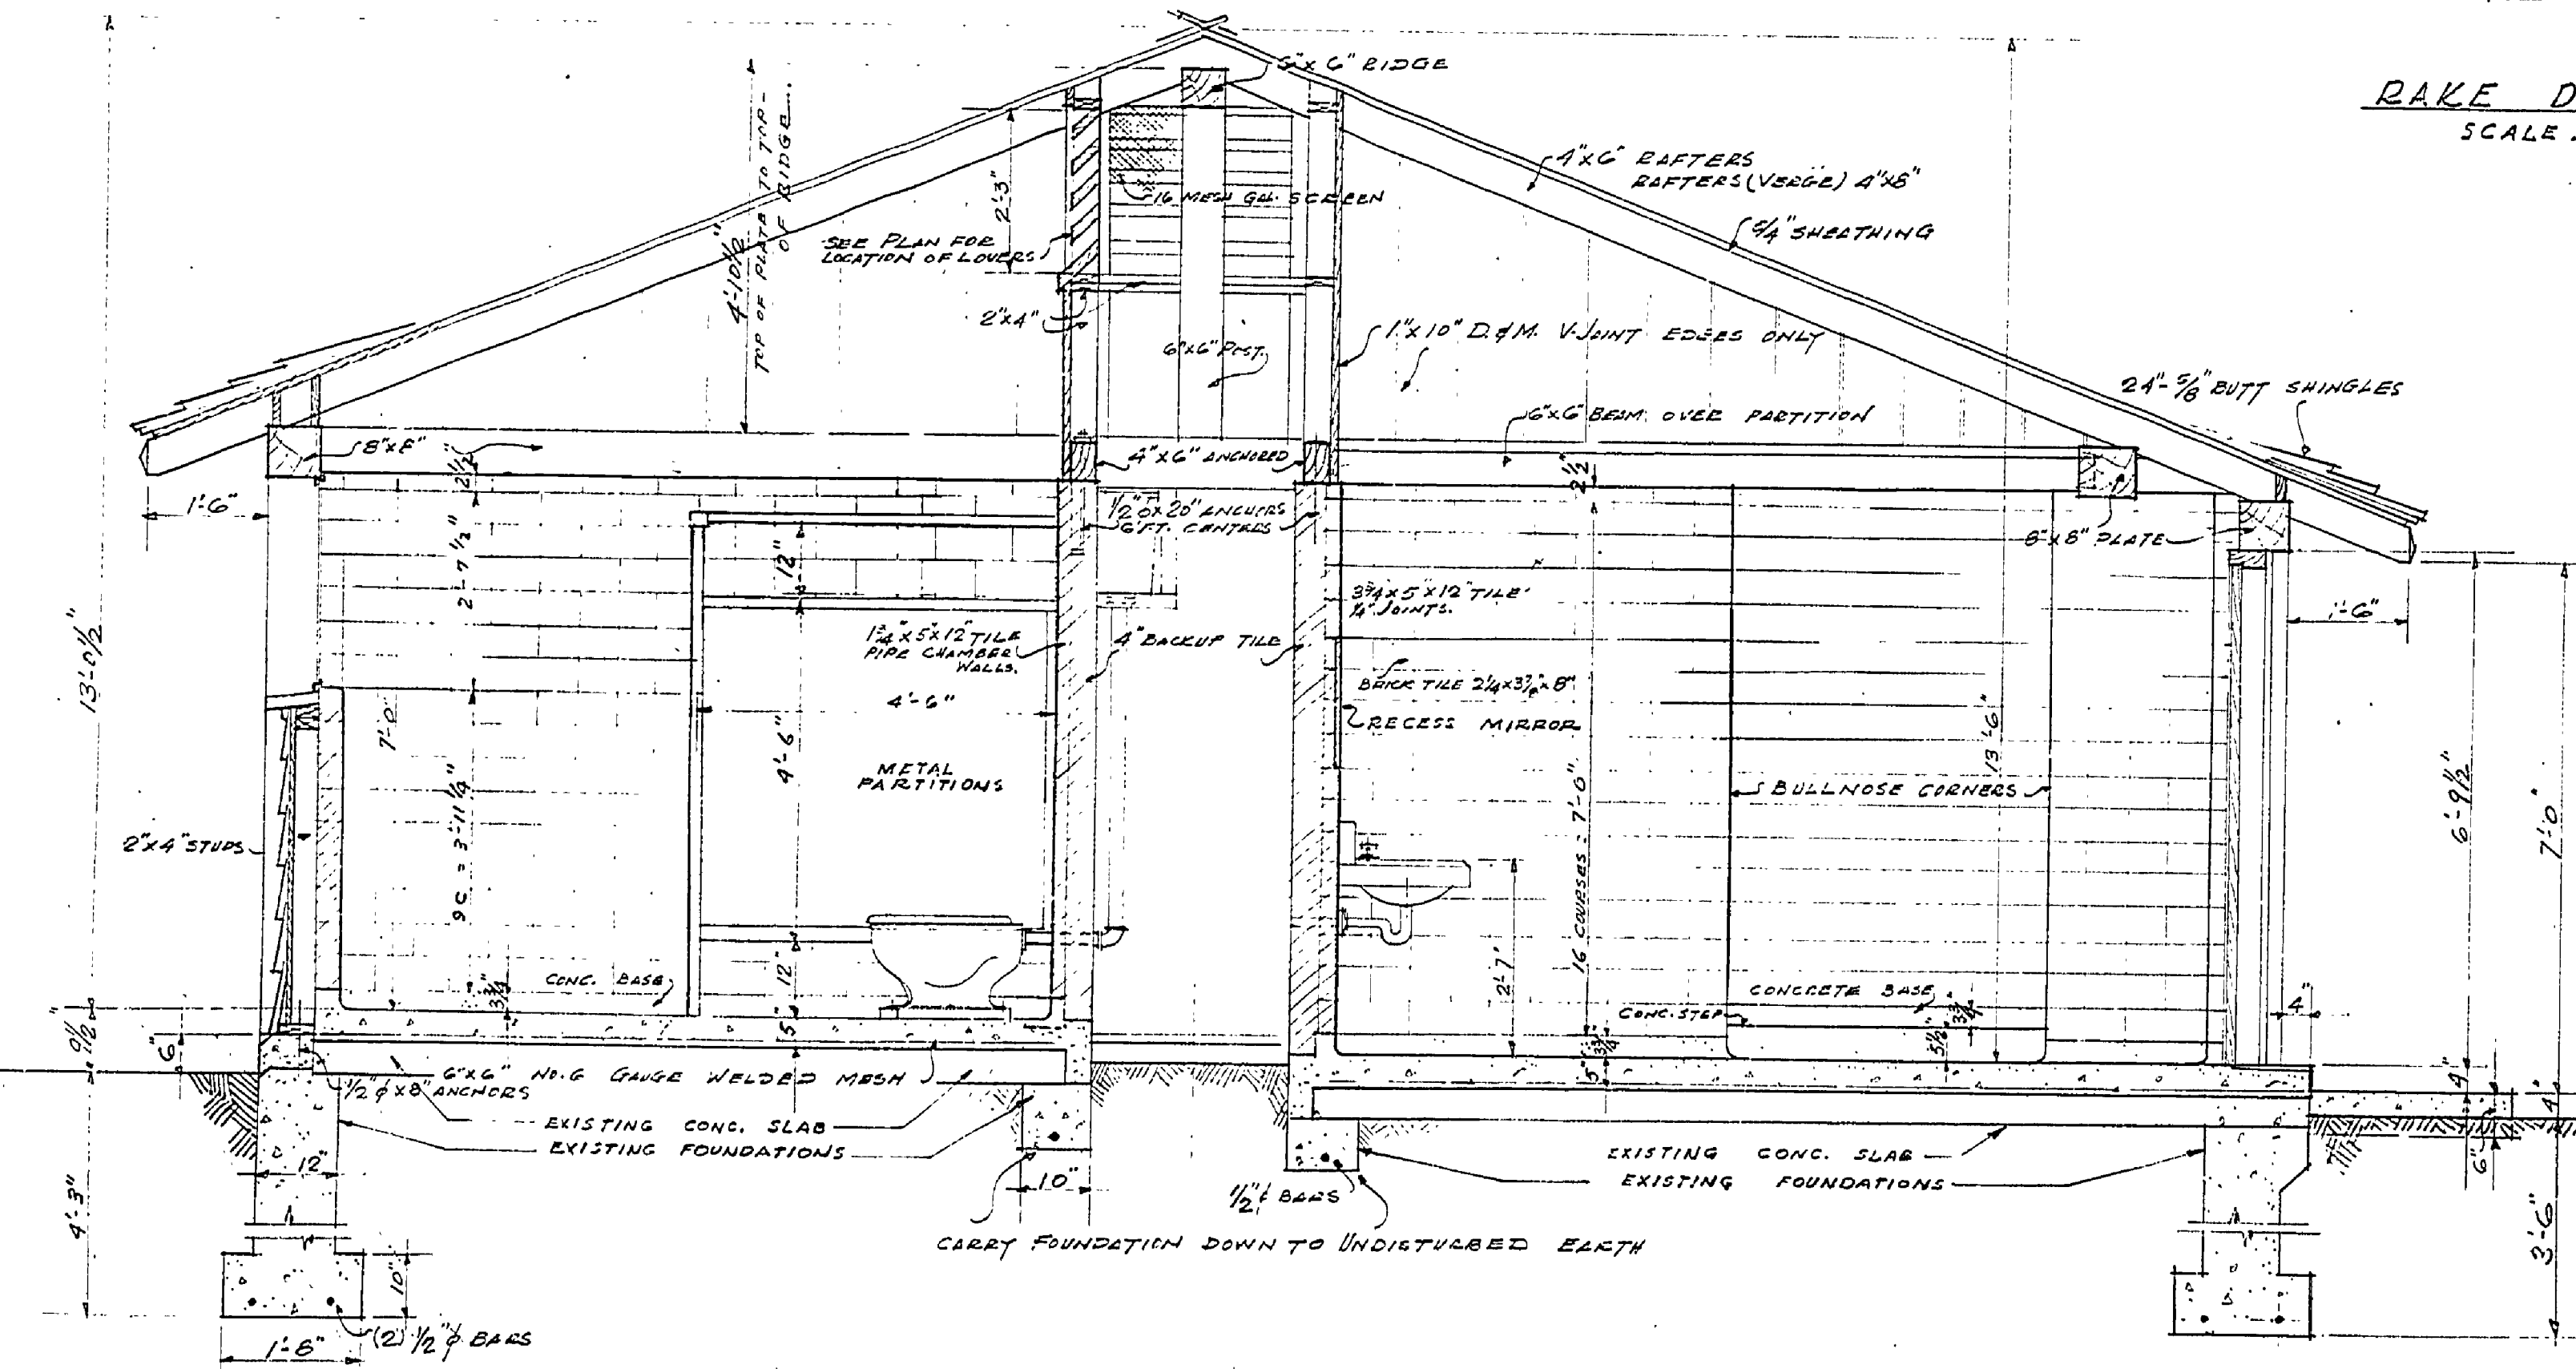 RAKE D
SCALE
6"x 6" RIDGE
4"x6" RAFTERS
RAFTERS (VERGE) 4"x8"
5/4" SHEATHING
16 MESH GAL. SCREEN
2'-3"
SEE PLAN FOR
LOCATION OF LOVERS
4'-10½"
TOP OF PLATE TO TOP-
OF RIDGE.
2"x4"
6"x6" POST.
1"x10" D.&M. V-JOINT EDGES ONLY
24"-5/8" BUTT SHINGLES
6"x6" BEAM OVER PARTITION
8"x8"
2½"
4"x6" ANCHORED
2½"
1'-6"
½"ø x 20" ANCHORS
6 FT. CENTERS
8"x8" PLATE
2'-7½"
12"
3¾x5x12 TILE
¼" JOINTS.
1'-6"
13'-0½"
1¾"x5"x12" TILE
PIPE CHAMBER
WALLS.
4" BACKUP TILE
BRICK TILE 2¼x3⅞x8"
RECESS MIRROR
4'-6"
7'-0"
4'-6"
METAL
PARTITIONS
13'-6"
6'-9½"
7'-0"
BULLNOSE CORNERS
2"x4" STUDS
9C = 3'-11¼"
16 COURSES = 7'-0"
2'-7"
CONC. BASE
3¾"
12"
5"
CONCRETE BASE
CONC. STEP
3¾"
5½"
3¾"
5"
4"
9½"
6"
6"x6" NO.6 GAUGE WELDED MESH
½"ø x8" ANCHORS
EXISTING CONC. SLAB
EXISTING FOUNDATIONS
4"
4"
6"
EXISTING CONC. SLAB
EXISTING FOUNDATIONS
12"
10"
½"ø BARS
4'-3"
3'-6"
CARRY FOUNDATION DOWN TO UNDISTURBED EARTH
10"
1'-8"
(2) ½"ø BARS